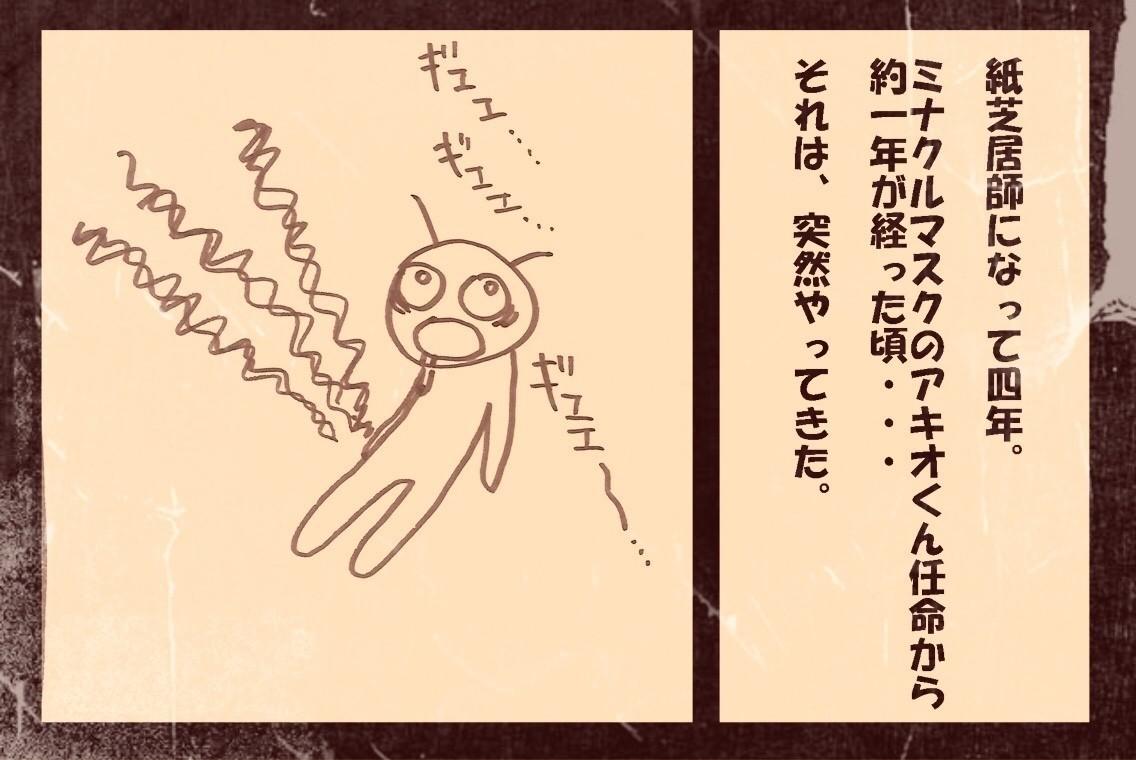 紙芝居師になって四年。
ミナクルマスクのアキオくん任命から
約一年が経った頃・・・
それは、突然やってきた。
ギエエ…
ギエエ…
ギエエ〜…